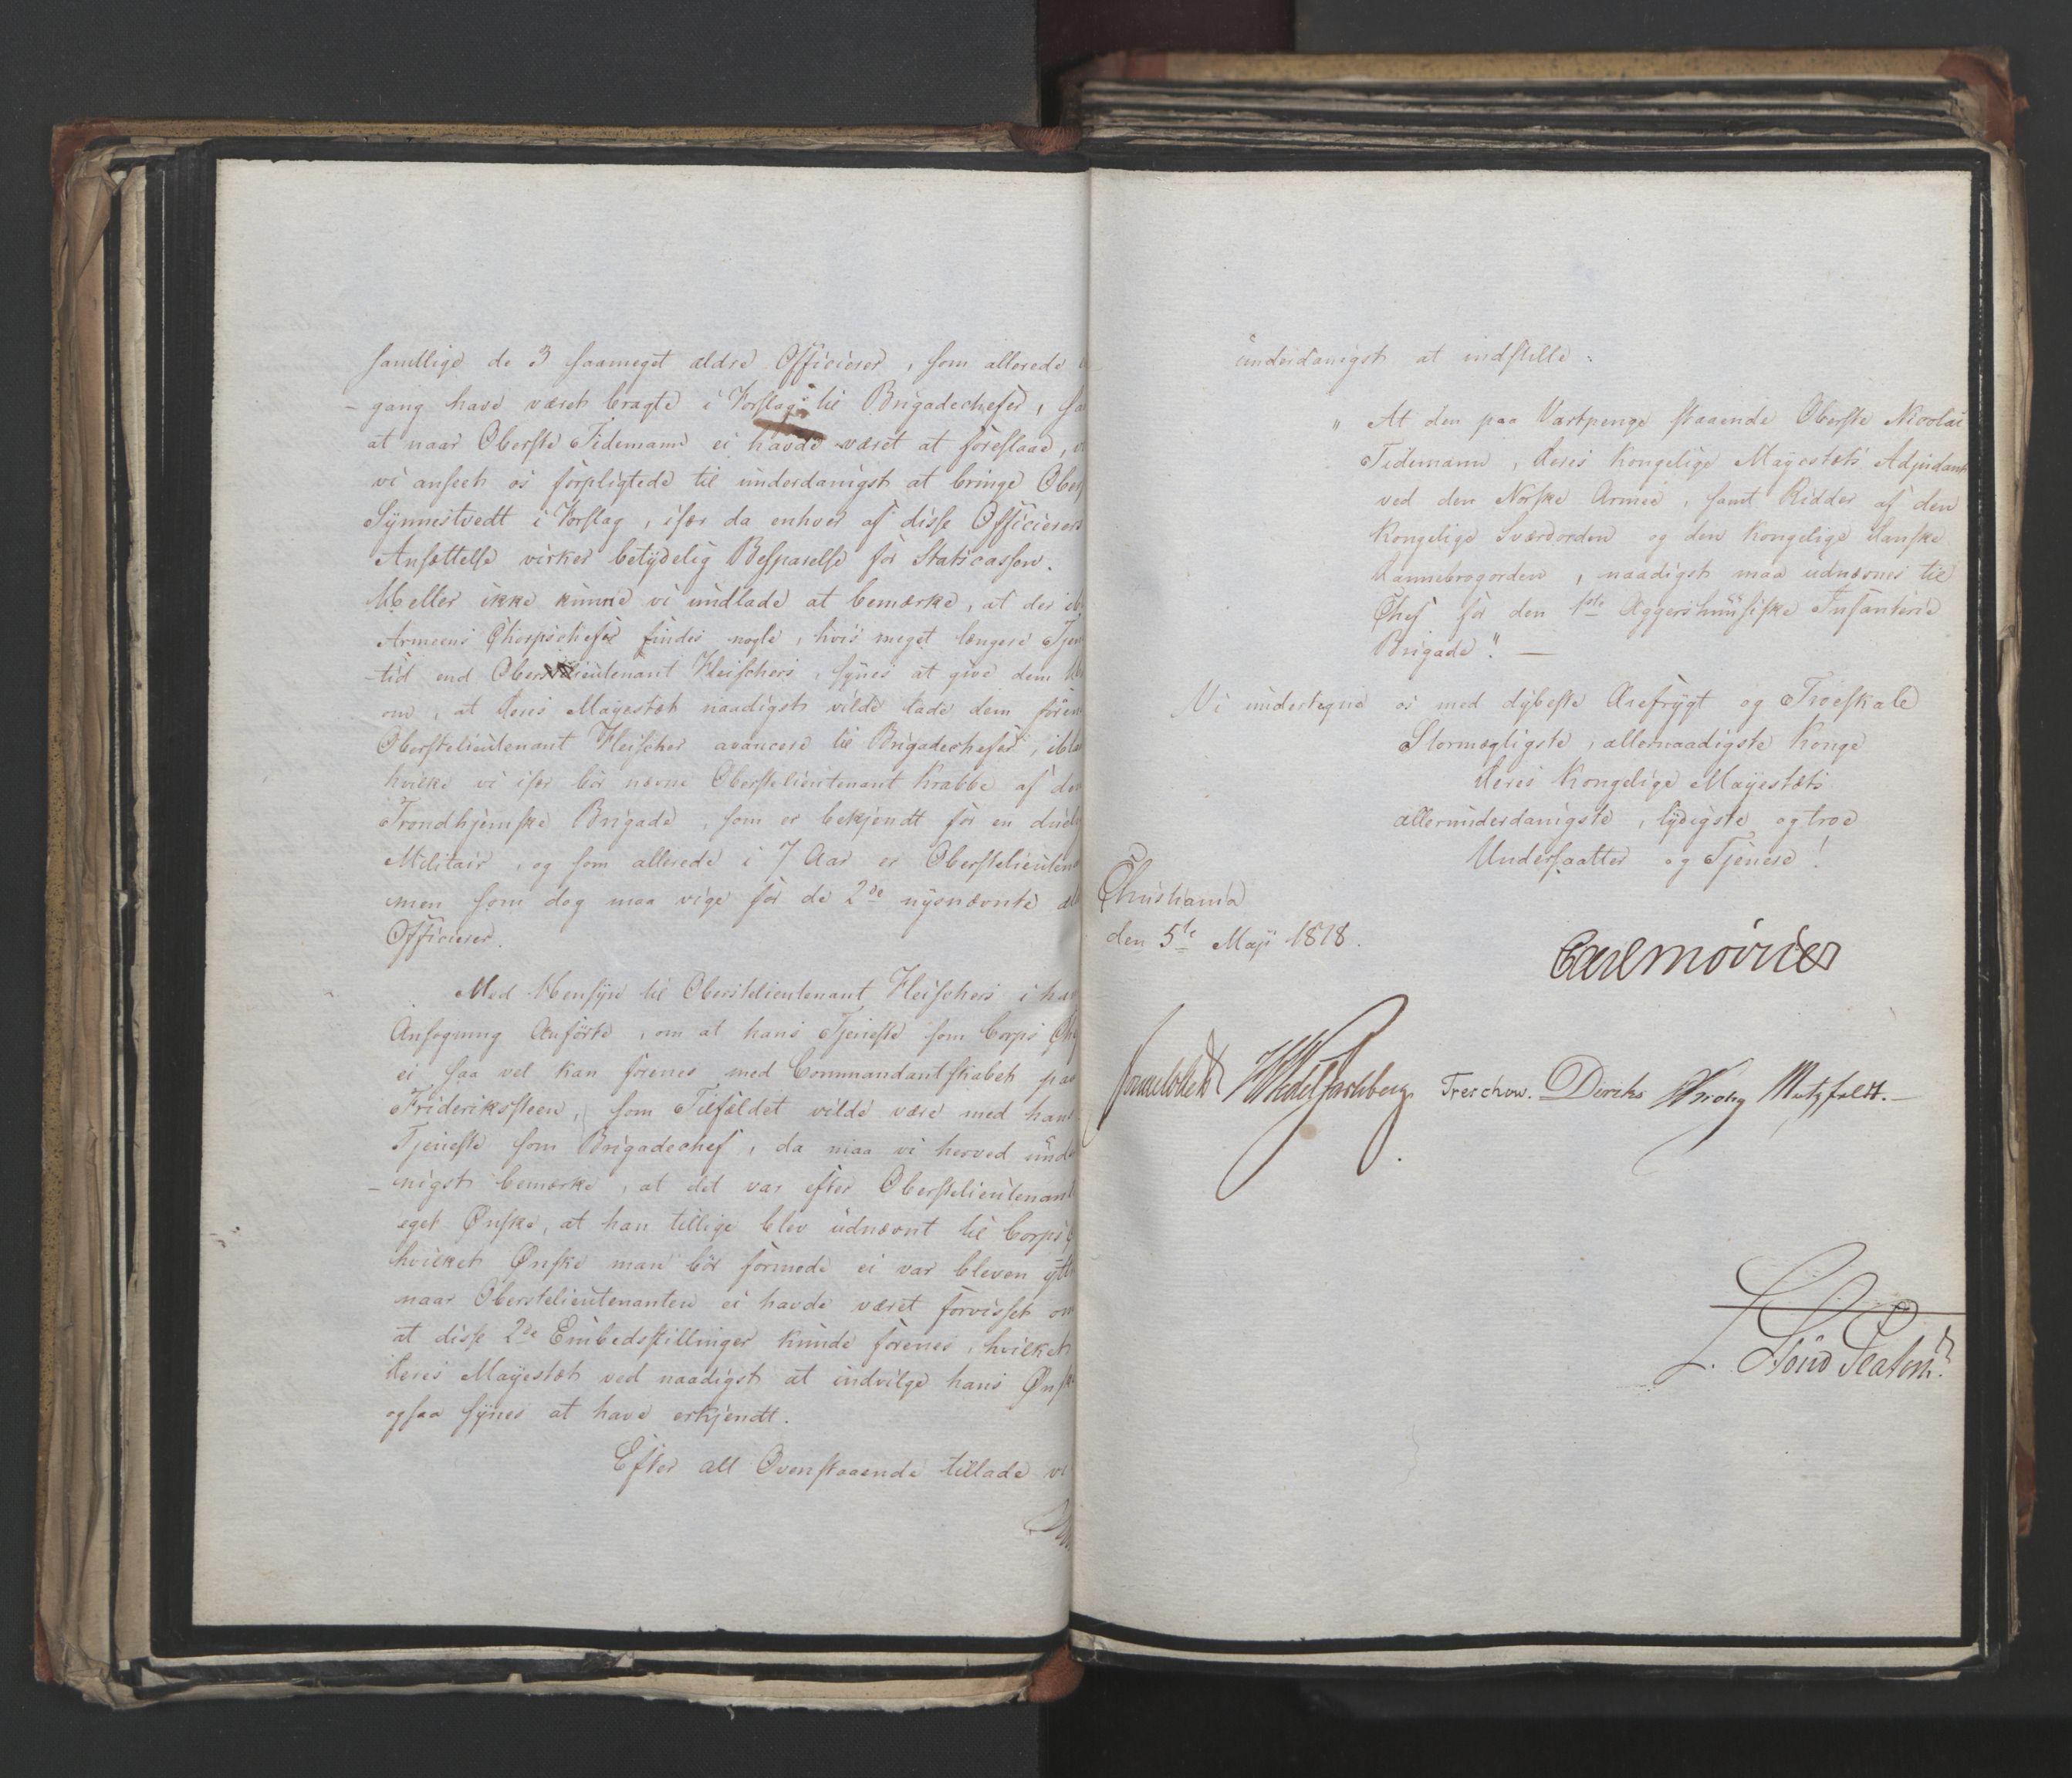 samtlige de 3 saameget ældre Officierer, som allerede
- gang have været bragte i Forslag til Brigadechefer,
at naar Oberste Tidemann ei havde været at foreslaae,
vi anseet os forpligtede til underdanigst at bringe Ober
Synnestvedt i Forslag, især da enhver af disse Officierers
Ansættelse virker betydelig Besparelse for Statscassen.
Heller ikke kunne vi undlade at bemærke, at der
Armeens Chorpschefer findes nogle, hvis meget længere Tjen
-tid end Oberstlieutenant Fleischers, synes at give dem
om, at Deres Mayestæt naadigst vilde lade dem foren
Oberstelieutenant Fleischer avancere til Brigadechefer, ibl
hvilke vi især bør nævne Oberstelieutenant Krabbe af den
Trondhjemske Brigade, som er bekjendt for en
Militair, og som allerede i 7 Aar er Oberstelieuten
men som dog maa vige for de 2de nysnævnte
Officierer.
Med Hensyn til Oberstelieutenant Fleischers i
Ansøgning Anførte, om at hans Tjeneste som Corps Ch
ei saa vel kan forenes med Commandantskabet paa
Frideriksteen, som Tilfældet vilde være med hans
Tjeneste som Brigadechef, da maa vi herved und
- nigst bemærke, at det var efter Oberstelieutenant
eget Ønske, at han tillige blev udnævnt til Corps
hvilket Ønske man bør formode ei var bleven ytt
naar Oberstelieutenanten ei havde været forvisset om
at disse 2de Embedsstillinger kunde forenes, hvilket
Deres Mayestæt ved naadigst at indvilge hans Ønsk
ogsaa synes at have erkjendt.
Efter alt Ovenstaaende tillade vi
underdanigst at indstille:
" At den paa Vartpenge staaende Oberste Nicolai
Tidemann, Deres Kongelige Mayestæts Adjudant
ved den Norske Armee, samt Ridder af den
Kongelige Sværdorden og den Kongelige Danske
Dannebrogorden, naadigst maa udnævnes til
Chef for den 1ste Aggershuusiske Infanterie
Brigade". —
Vi undertegne os med dybeste Ærefrygt og Troeskab
Stormægtigste, allernaadigste Konge
Deres Kongelige Mayestæts
allerunderdanigste, lydigste og troe
Undersaatter og Tjenere!
Christiania
den 5te Maji 1818.
Carl Mörner
Sommerhielm HWedelJarlsberg Treschow. Diriks Krohg Motzfeldt. —
L. Lövo Platou